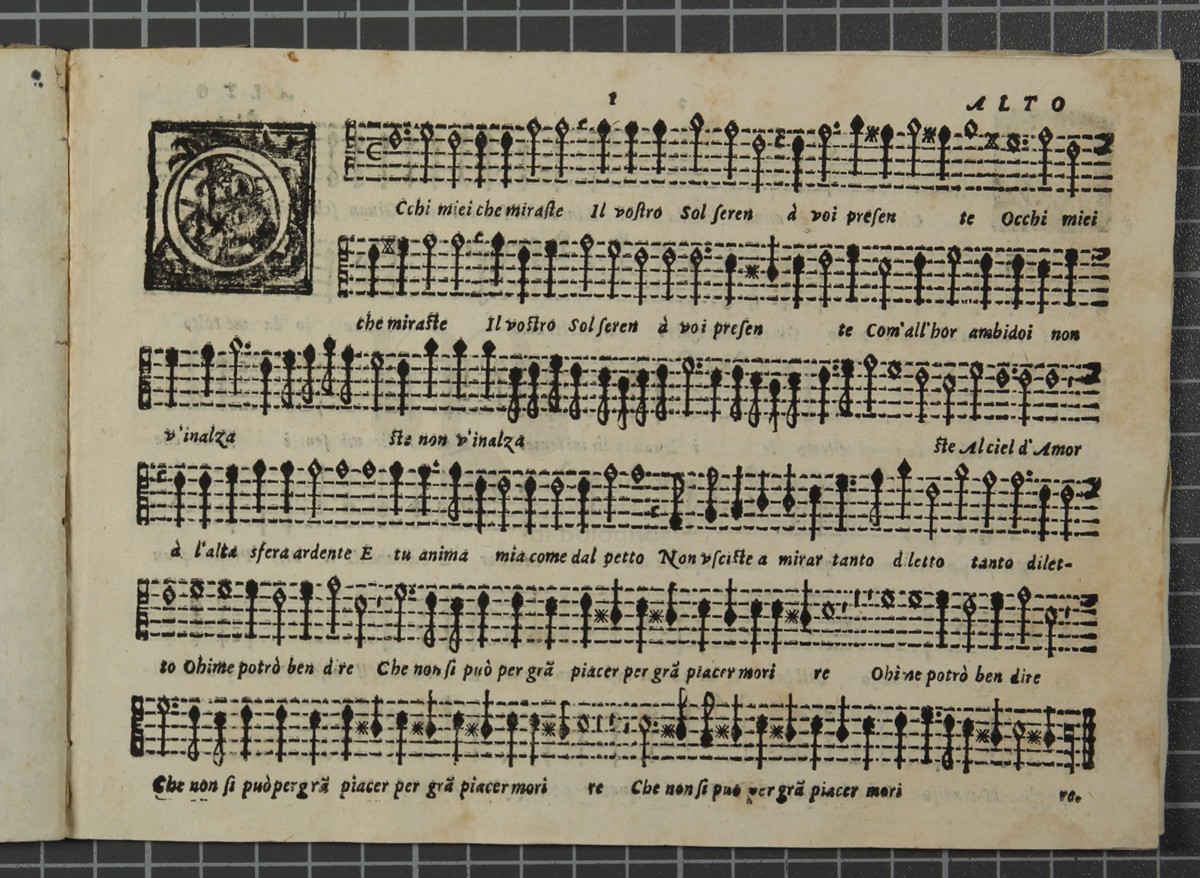 1 ALTO
OCchi miei che miraſte Il voſtro Sol ſeren à voi preſen te Occhi miei
che miraſte Il voſtro Sol ſeren à voi preſen te Com'all'hor ambidoi non
v'inalza ſte non v'inalza ſte Al ciel d'Amor
à l'alta sfera ardente E tu anima mia come dal petto Non vſciſte a mirar tanto diletto tanto dilet-
to Ohime potrò ben dire Che non ſi può per grã piacer per grã piacer mori re Ohime potrò ben dire
Che non ſi può per grã piacer per grã piacer mori re Che non ſi può per grã piacer mori re.